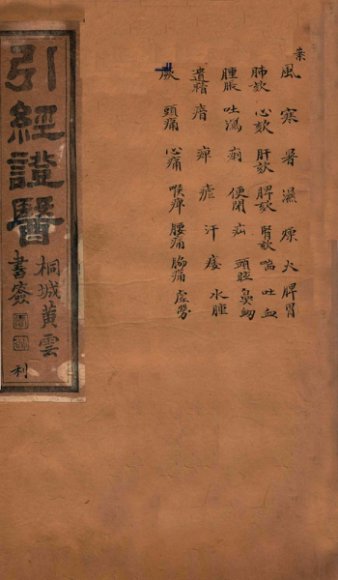 風 寒 暑 濕 燥 火 脾胃
肺欬 心欬 肝欬 脾欬 腎欬 喘 吐血
腫脹 吐瀉 痢 便閉 疝 頭眩 鼻衄
遺精 瘖 痺 瘧 汗 痿 水腫
厥 頭痛 心痛 喉痺 腰痛 胸痛 虛勞
引經證醫
桐城黃雲
書簽
利